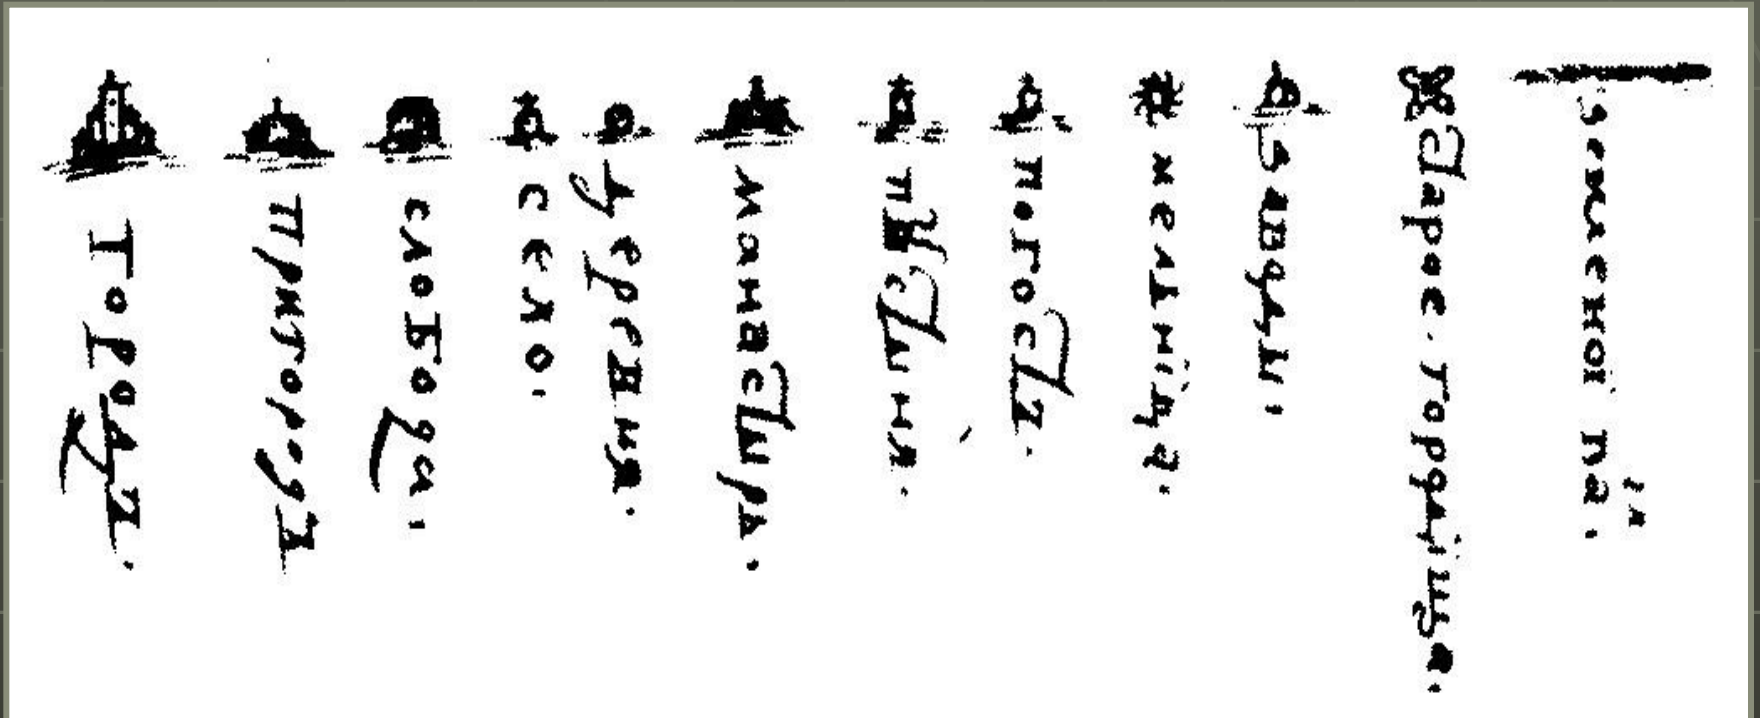 городъ.
пригородъ
слобода.
село.
деревня.
манастырь.
пȣстыня.
погостъ.
мелнїца.
заводы.
старое. городїще.
земленоі валъ.